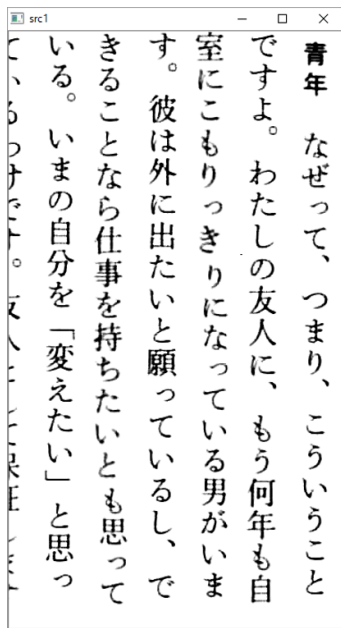 src1
青年　なぜって、つまり、こういうこと
ですよ。わたしの友人に、もう何年も自
室にこもりっきりになっている男がいま
す。彼は外に出たいと願っているし、で
きることなら仕事を持ちたいとも思って
いる。いまの自分を「変えたい」と思っ